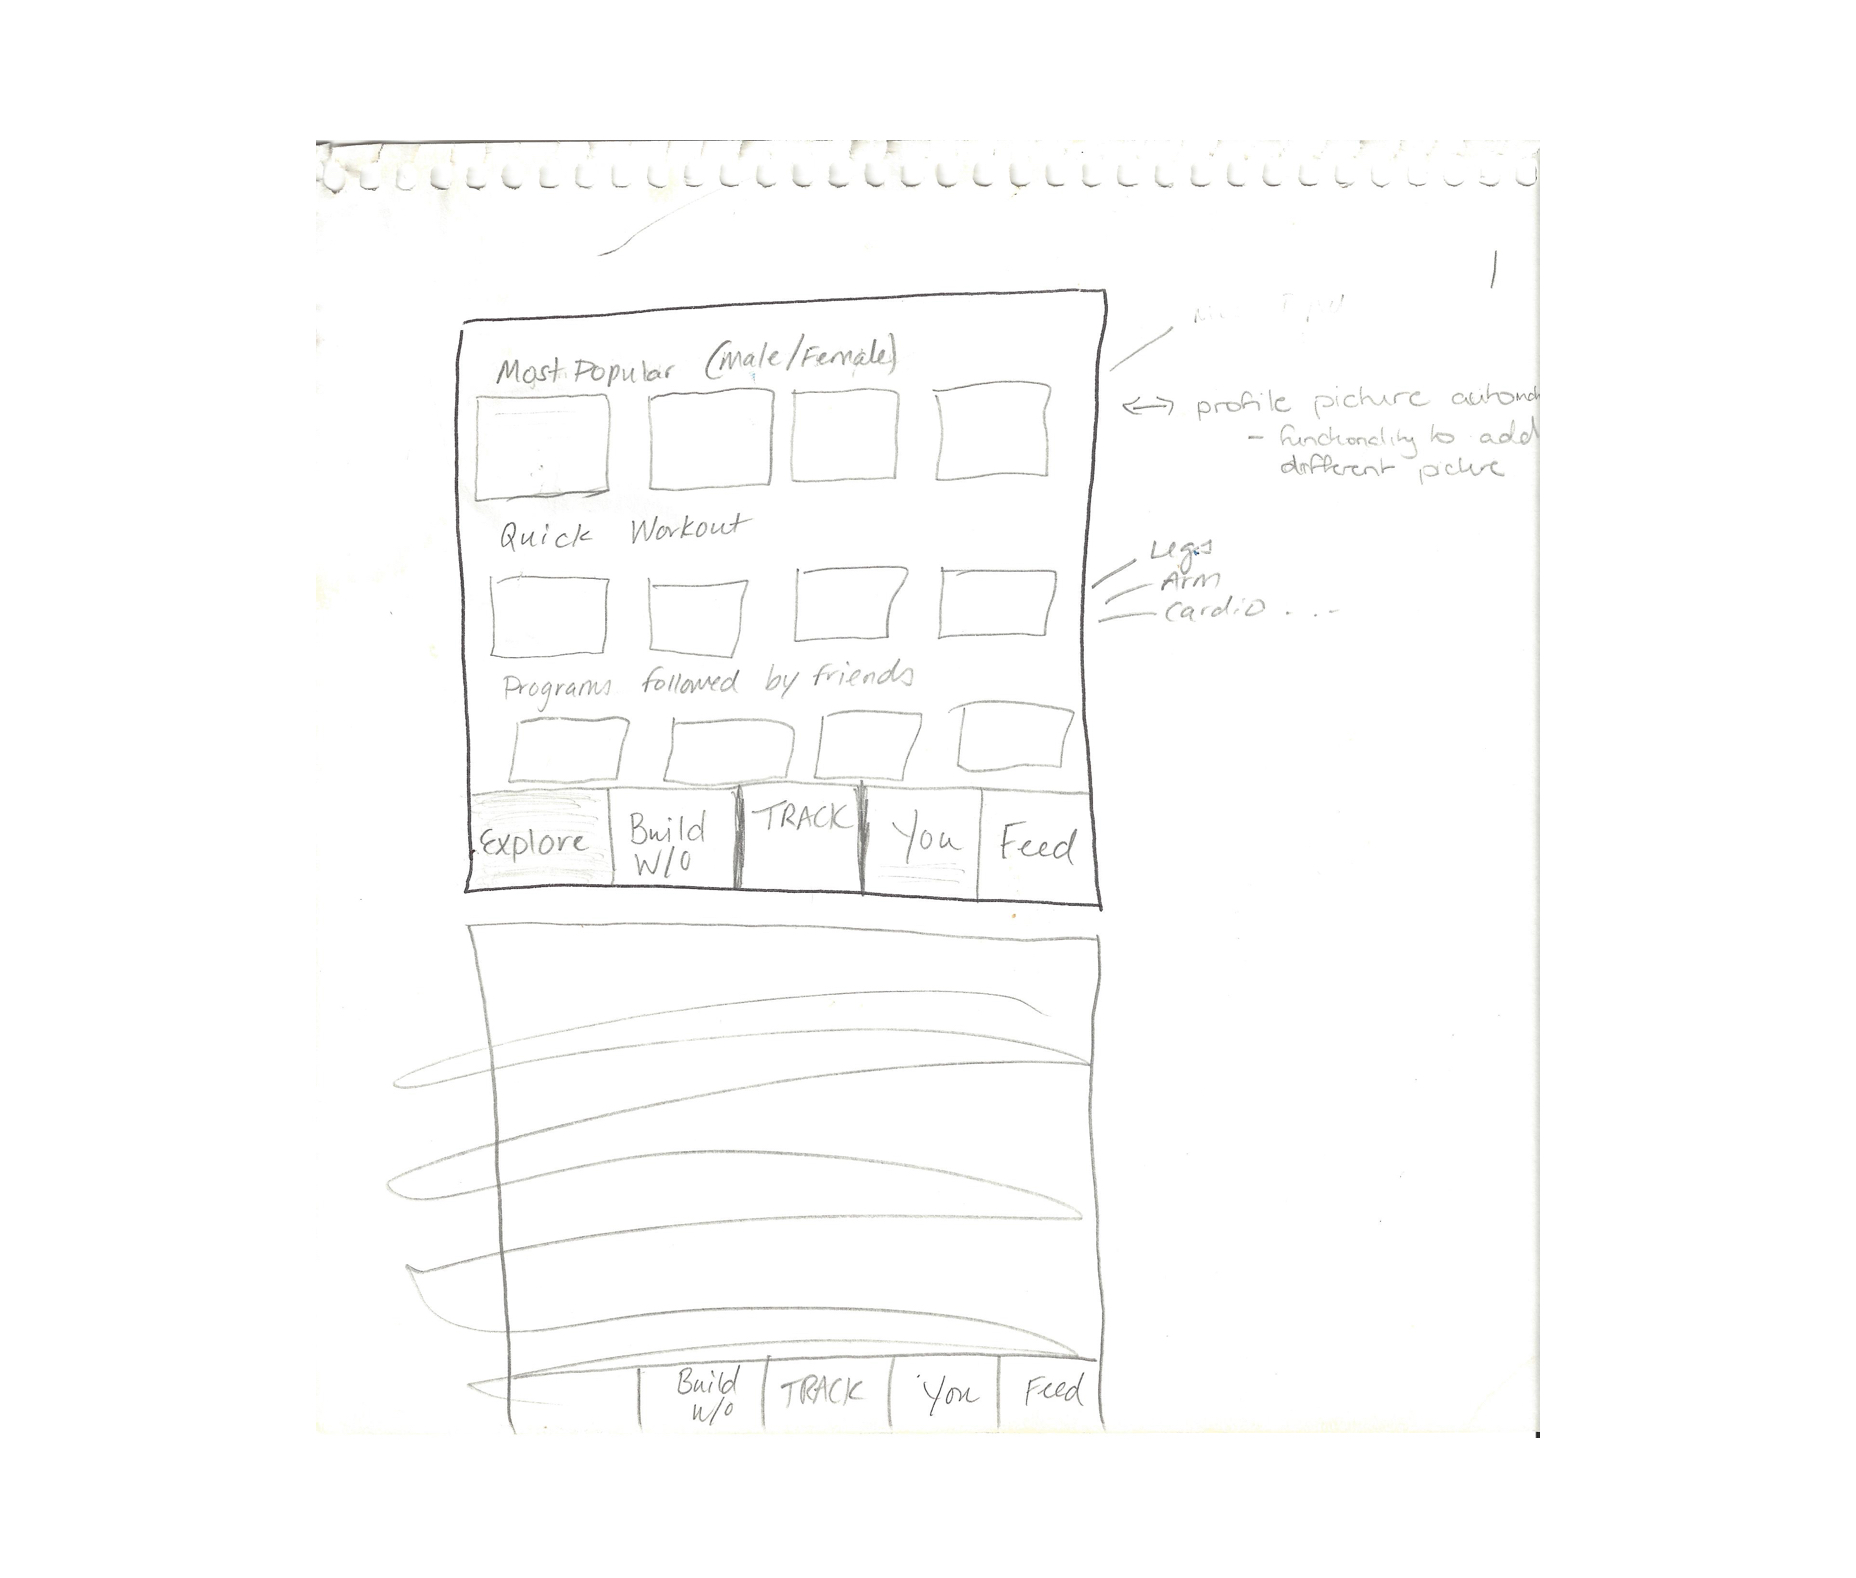 1
Most Popular (Male/Female)
profile picture
- functionality to add
different picture
Quick Workout
Legs
Arm
Cardio ...
Programs followed by friends
Explore
Build
W/O
TRACK
You
Feed
Build
W/O
TRACK
You
Feed